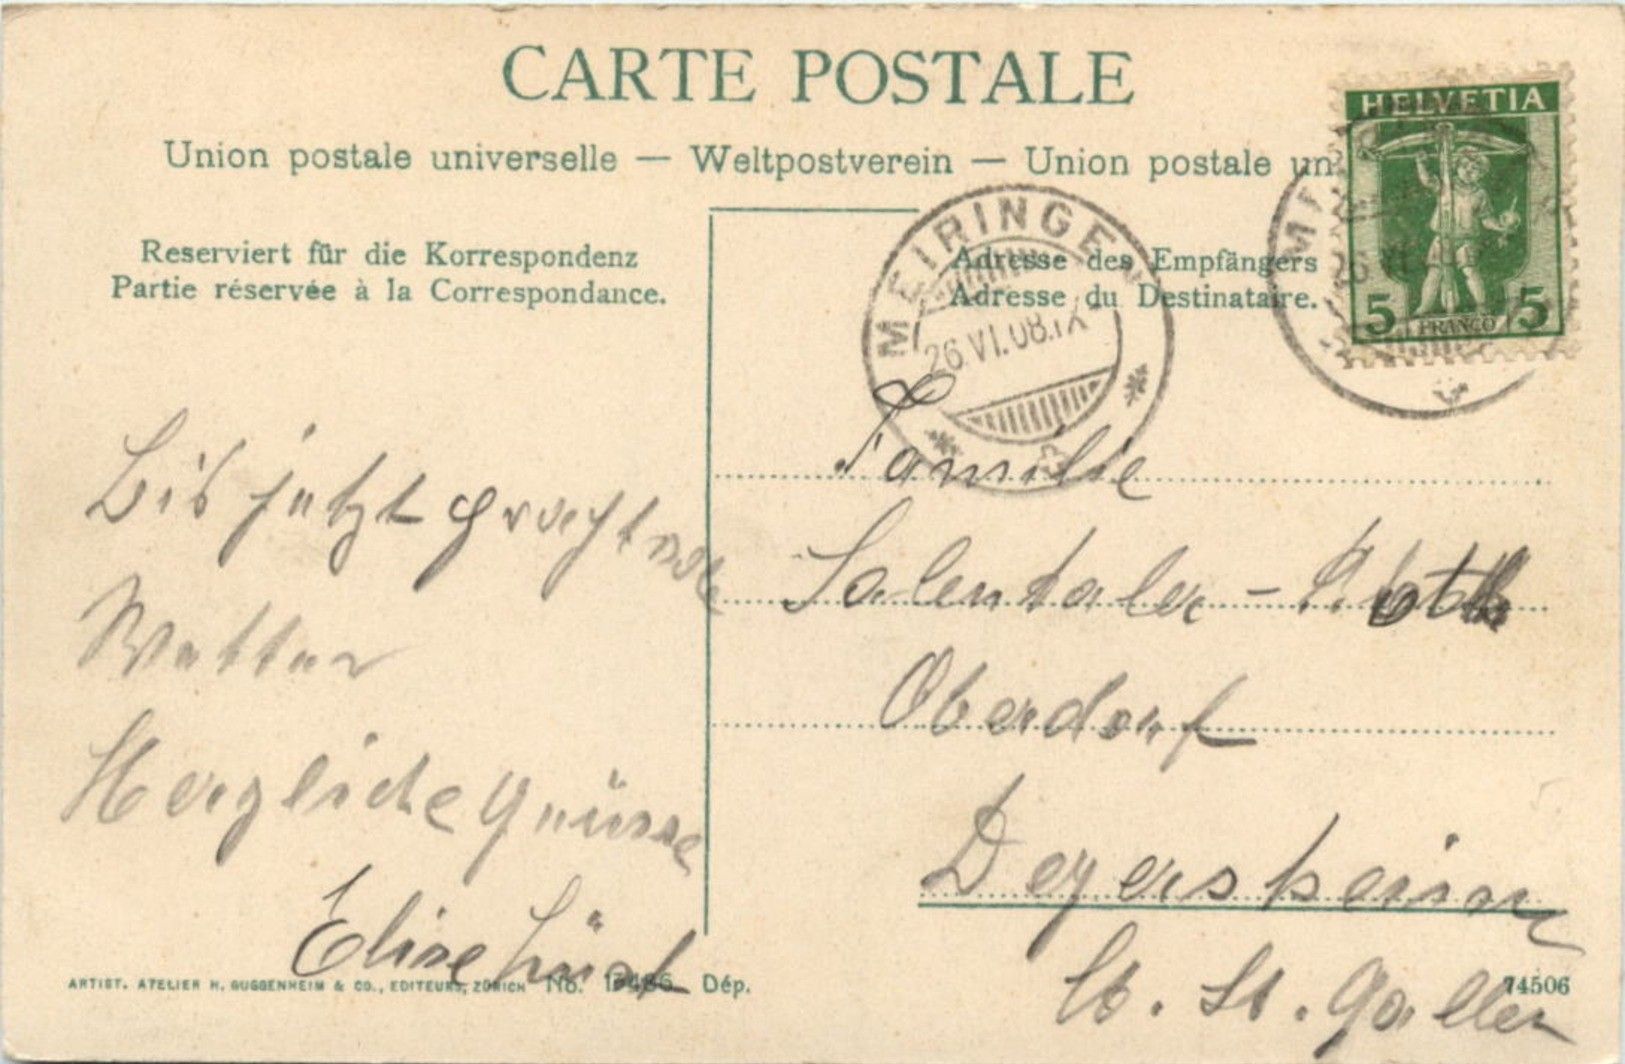 CARTE POSTALE
Union postale universelle — Weltpostverein — Union postale un
HELVETIA
5 FRANCO 5
MEIRINGEN
26.VI.08.IX
Reserviert für die Korrespondenz
Partie réservée à la Correspondance.
Adresse des Empfängers
Adresse du Destinataire.
Bis jetzt prachtvolle
Wetter
Herzliche Grüsse
Elise
Familie
Oberdorf
Degersheim
Ct. St. Gallen
ARTIST. ATELIER H. GUGGENHEIM & CO., EDITEURS, ZÜRICH No. 13486 Dép.
74506